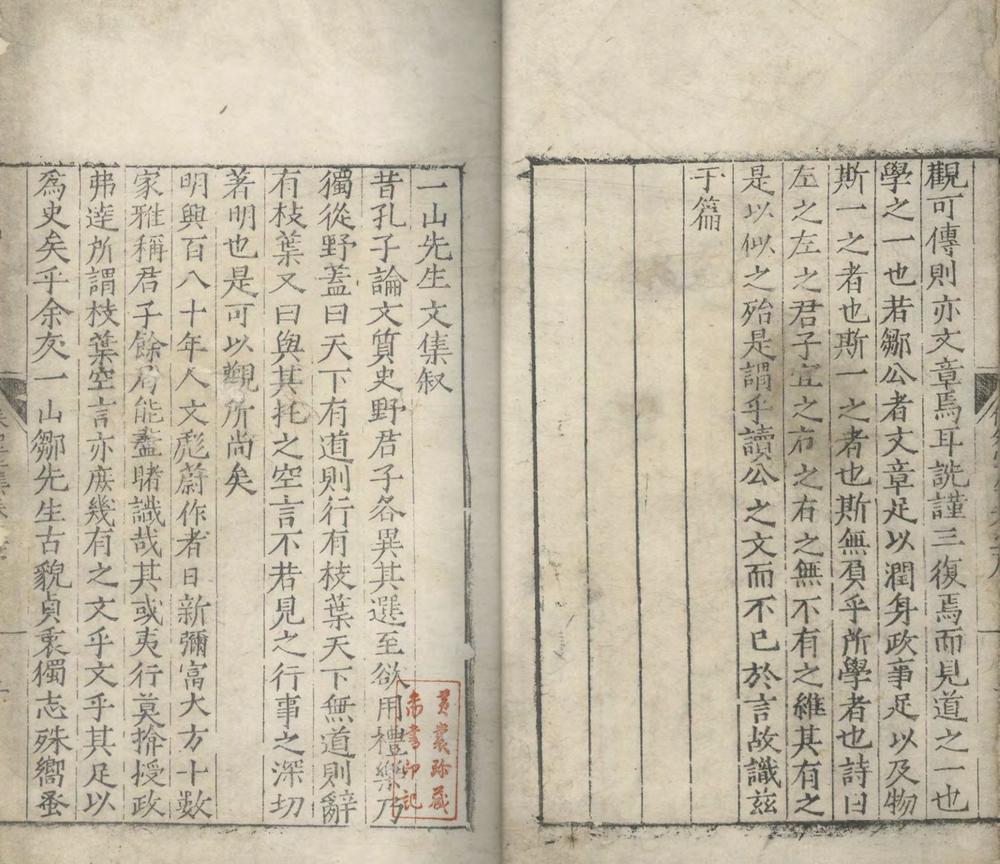 觀可傳則亦文章焉耳詵謹三復焉而見道之一也
學之一也若鄒公者文章足以潤身政事足以及物
斯一之者也斯一之者也斯無負乎所學者也詩曰
左之左之君子宜之右之右之無不有之維其有之
是以似之殆是謂乎讀公之文而不已於言故識茲
于篇
一山先生文集叙
昔孔子論文質史野君子各異其選至欲用禮樂乃
獨從野蓋曰天下有道則行有枝葉天下無道則辭
有枝葉又曰與其托之空言不若見之行事之深切
著明也是可以觀所尚矣
明興百八十年人文彪蔚作者日新彌富大方十數
家雅稱君子餘君能盡睹識哉其或夷行莫揜授政
弗逹所謂枝葉空言亦庶幾有之文乎文乎其足以
為史矣乎余友一山鄒先生古貌貞衷獨志殊嚮蚤
黃裳珍藏
善書印記